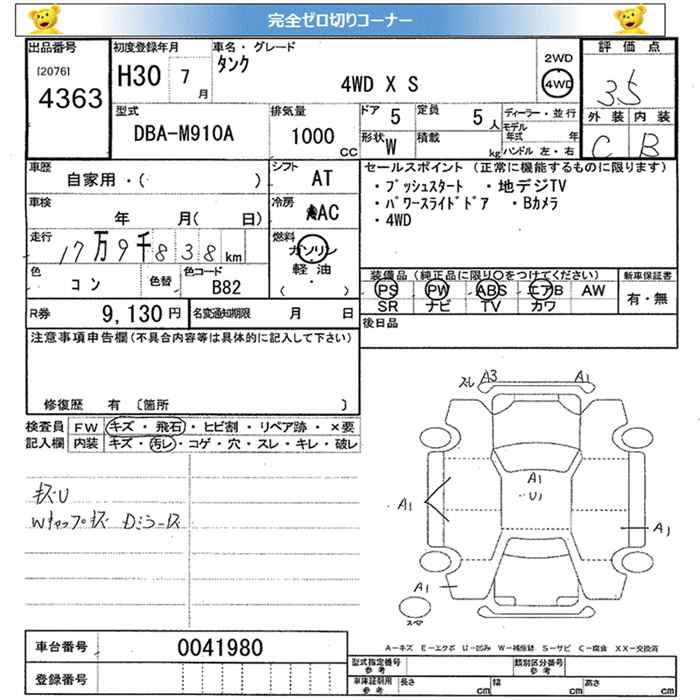 完全ゼロ切りコーナー
出品番号 初度登録年月 車名・グレード 2WD 評価点
[2076] 4363 H30 7月 タンク 4WD X S 4WD 3.5
型式 排気量 ドア 5 定員 5人 ディーラー・並行 外装 内装
DBA-M910A 1000CC 形状 W 積載 kg モデル年式 年 C B
ハンドル 左・右
車歴 シフト セールスポイント (正常に機能するものに限ります)
自家用・( ) AT ・プッシュスタート ・地デジTV
車検 冷房 ・パワースライドドア ・Bカメラ
年 月( 日) AAC ・4WD
走行 燃料
17万9千838km ガソリン
軽油
・
( )
色 色替 色コード 装備品 (純正品に限り○をつけてください) 新車保証書
コン B82 PS PW ABS エアB AW 有・無
SR ナビ TV カワ
R券 9,130円 名変通知期限 月 日 後日品
注意事項申告欄(不具合内容等は具体的に記入して下さい)
修復歴 有 〔箇所 〕
検査員 FW キズ・飛石・ヒビ割・リペア跡・×要
記入欄 内装 キズ・汚レ・コゲ・穴・スレ・キレ・破レ
キズU
Wキャップキズ Dミラーズ
スレ A3 A1
A1
U
A1 A1
A1
スペア
車台番号 0041980
A−キズ E−エクボ U−凹み W−補修跡 S−サビ C−腐食 XX−交換済
登録番号 型式指定番号 参考 類別区分番号 参考
車庫証明用 参考 長さ cm 幅 cm 高さ cm